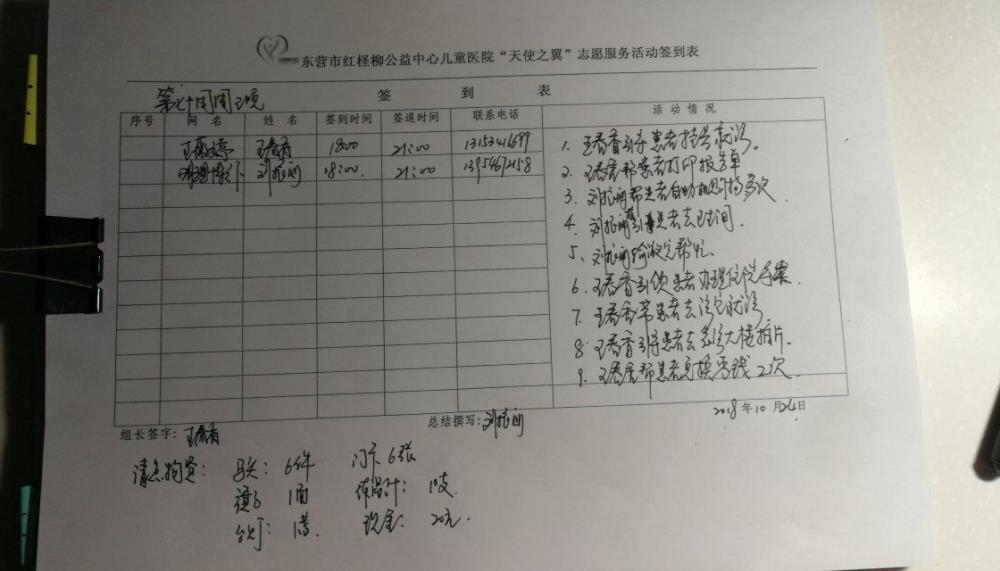 东营市红柽柳公益中心儿童医院“天使之翼”志愿服务活动签到表
签 到 表
第七十周周三晚
序号 网 名 姓 名 签到时间 签退时间 联系电话 活 动 情 况
王春香 18:00 21:00
18:00. 21:00
1. 王春香引导患者挂号就诊。
2. 王春香帮患者打印报告单
3. 刘振Leaving帮患者自助机多次
4. 引导患者去卫生间.
5、输液室帮忙.
6. 王春香引领患者办理住院手续.
7. 王春香带患者去诊室就诊
8 王春香引导患者去门诊大楼拍片.
9. 王春香帮患者兑换零钱2次.
组长签字: 王春香
总结撰写:
2018年10月24日
清点物资: 马夹: 6件 门卡6张
旗子 1面 体温计: 1支.
台灯: 1盏. 现金: 20元.